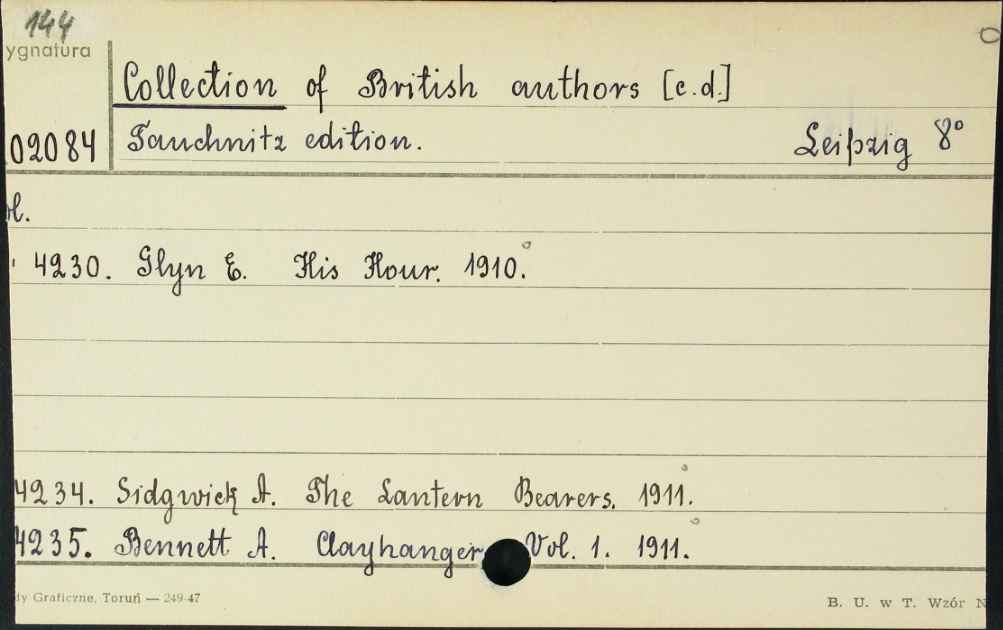 144
ygnatura
Collection of British authors [c.d.]
02084 Tauchnitz edition. Leipzig 8°
ol.
4230. Glyn E. His Hour. 1910.
4234. Sidgwick A. The Lantern Bearers. 1911.
4235. Bennett A. Clayhanger Vol. 1. 1911.
dy Graficzne, Toruń — 249-47 B. U. w T. Wzór N